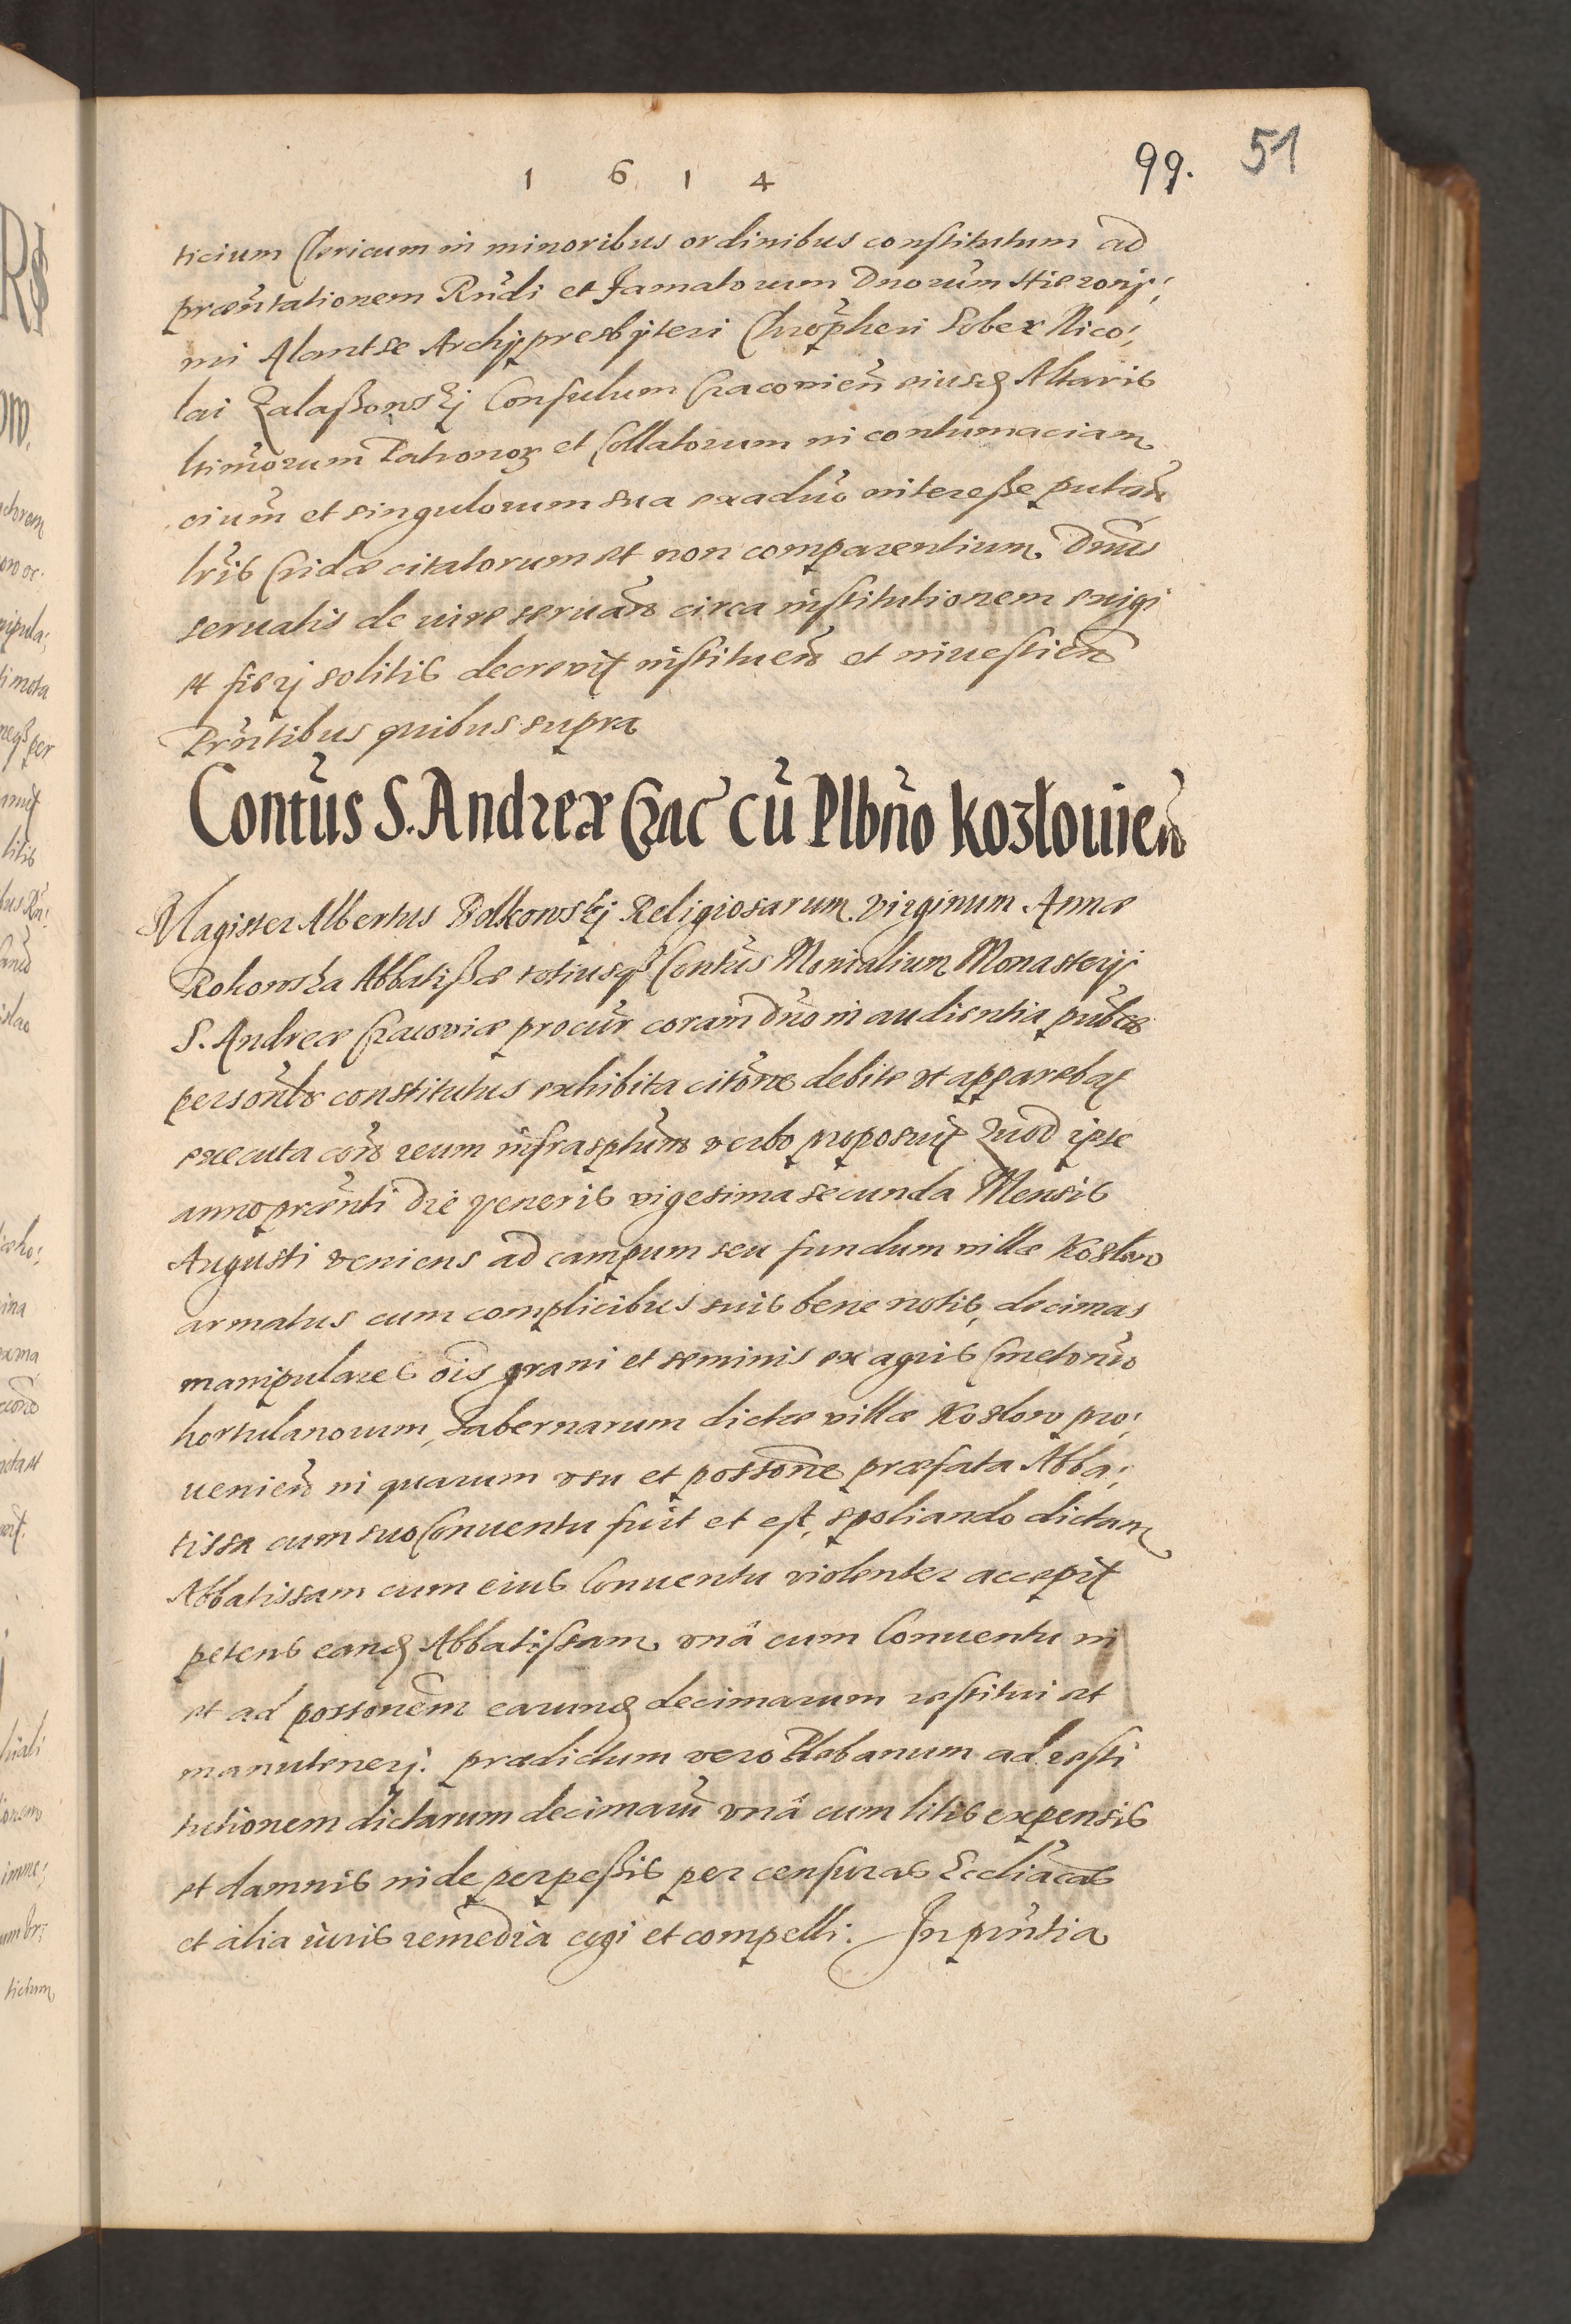 1 6 1 4
99. 51
ticium Clericum in minoribus ordinibus constitutum ad
præntationem Rndi et Famatorum Dnorum Hierony:
mi Alantse Archypresbyteri Chropheri Sober Nico:
lai Zalaßowskj Consulum Cracovien eiusdꝫ Altaris
ltimorum Patronoꝝ et Collatorum in contumaciam
oium et singulorum sua exaduo interesse putan
lris Cridæ citatorum et non comparentium Dnus
seruatis de iure seruan circa institutionem exigi
et fierj solitis decrevit instituen et investien
Prntibus quibus supra
Contus S. Andreæ Crac cu Plbno Kozlovien
Magister Albertus Bolkowskj Religiosarum virginum Annæ
Rokowska Abbatißæ totiusqꝫ Contus Monialium Monasterij
S. Andreæ Cracoviæ procur coram Dno in audientia publca
personlr constitutus exhibita citone debite ut apparebat
executa con reum infrascptum verbo proposuit Quod ipse
anno prænti die Veneris vigesima secunda Mensis
Augusti veniens ad campum seu fundum villæ Kozlow
armatus cum complicibus suis bene notis, decimas
manipulares ois grani et seminis ex agris Cmetonum
hortulanorum, Tabernarum dictæ villæ Kozlow pro:
uenien in quarum vsu et possone præfata Abba:
tissa cum suo Conuentu fuit et est, spoliando dictam
Abbatissam cum eius Conuentu violenter accepit
petens eandꝫ Abbatissam vnâ cum Conuentu in
et ad possonem earundꝫ decimarum restitui et
manutenerj. prædictum vero Plebanum ad resti
tutionem dictarum decimaru vnâ cum litis expensis
et damnis inde perpeßis per censuras Ecclliacas
et alia iuris remedia cogi et compelli. In prntia